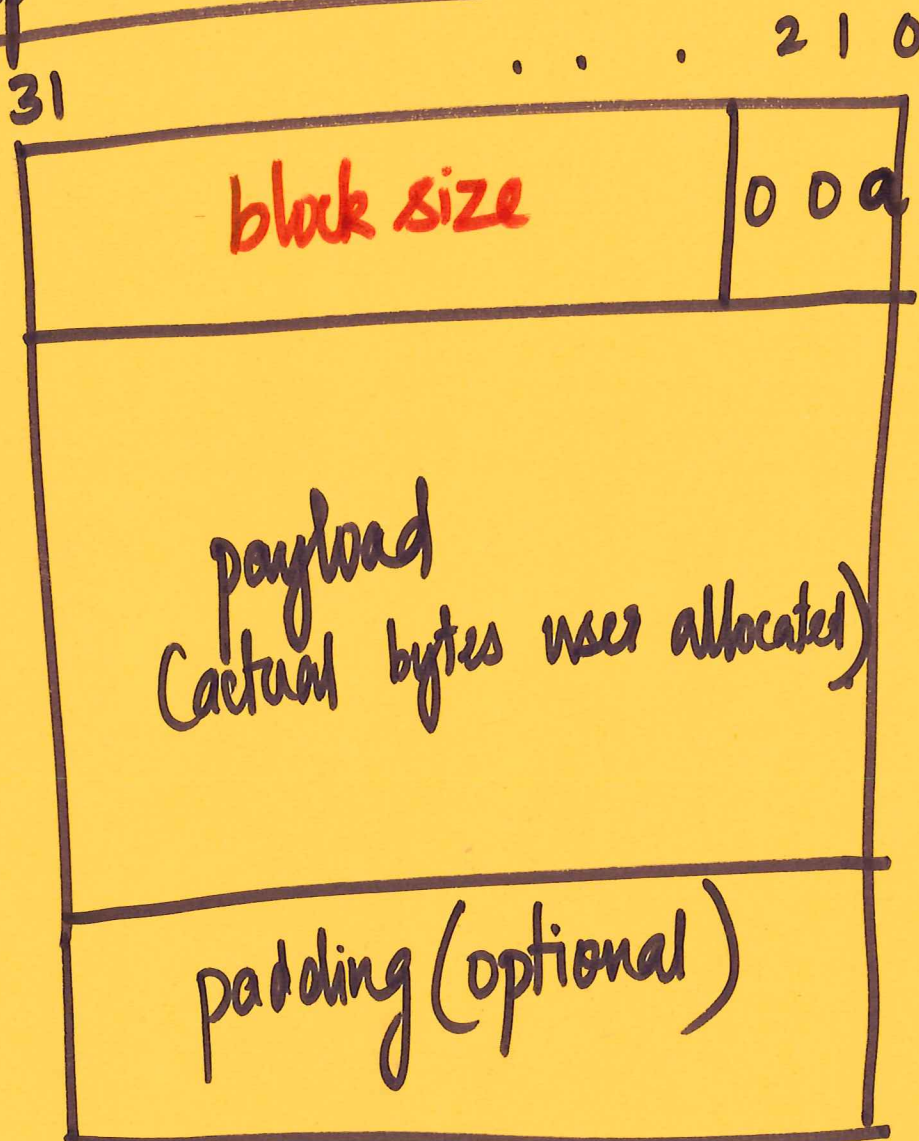 . . . 2 1 0
31
block size
0 0 a
payload
(actual bytes user allocated)
padding (optional)